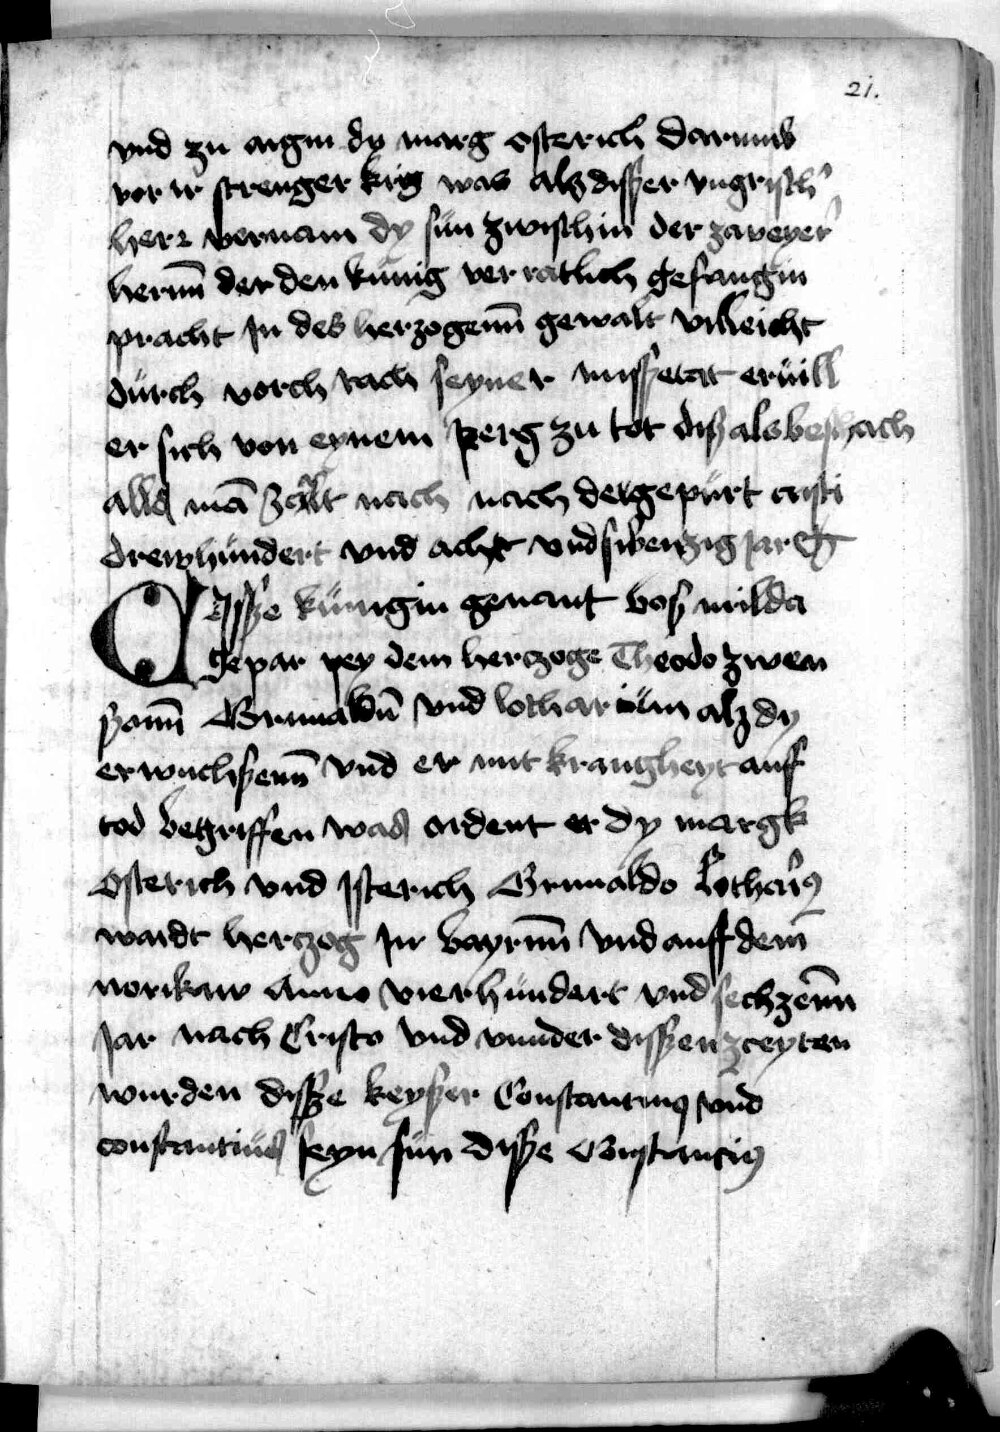 21.
vnd zu aigin dy marg osterich darumb
vor ir strenger krig was alz disser vngrisch
herr vernam dy sün zwischin der zweyer
herrnn der den künig verratlich gefangin
pracht In des herzogenn gewalt villeicht
dürch vorch rach seyner missetat erüill
er sich von eynem perg zu tot disz als beschach
alls man zcelt nach nach der gepürt cristi
drewhündert vnd acht vnd sibenzig Jar
Disse künigin genant bosmilda
gepar pey dem herczoge Theodo zwen
sonn Grimaldū vnd lothariüm alz dy
erwuchsenn vnd er mit krangheyt auff
tod begriffen was ordent er dy margk
Osterich vnd Isterich Grimaldo Lotharius
wardt herczog In bayrnn vnd auff dem
norikaw Anno vierhündert vnd sechzenn
Jar nach Cristo vnd vnnder dissen zceyten
wurden disse keyser Constantinus vnd
constantiüs seyn sün disse Constancius